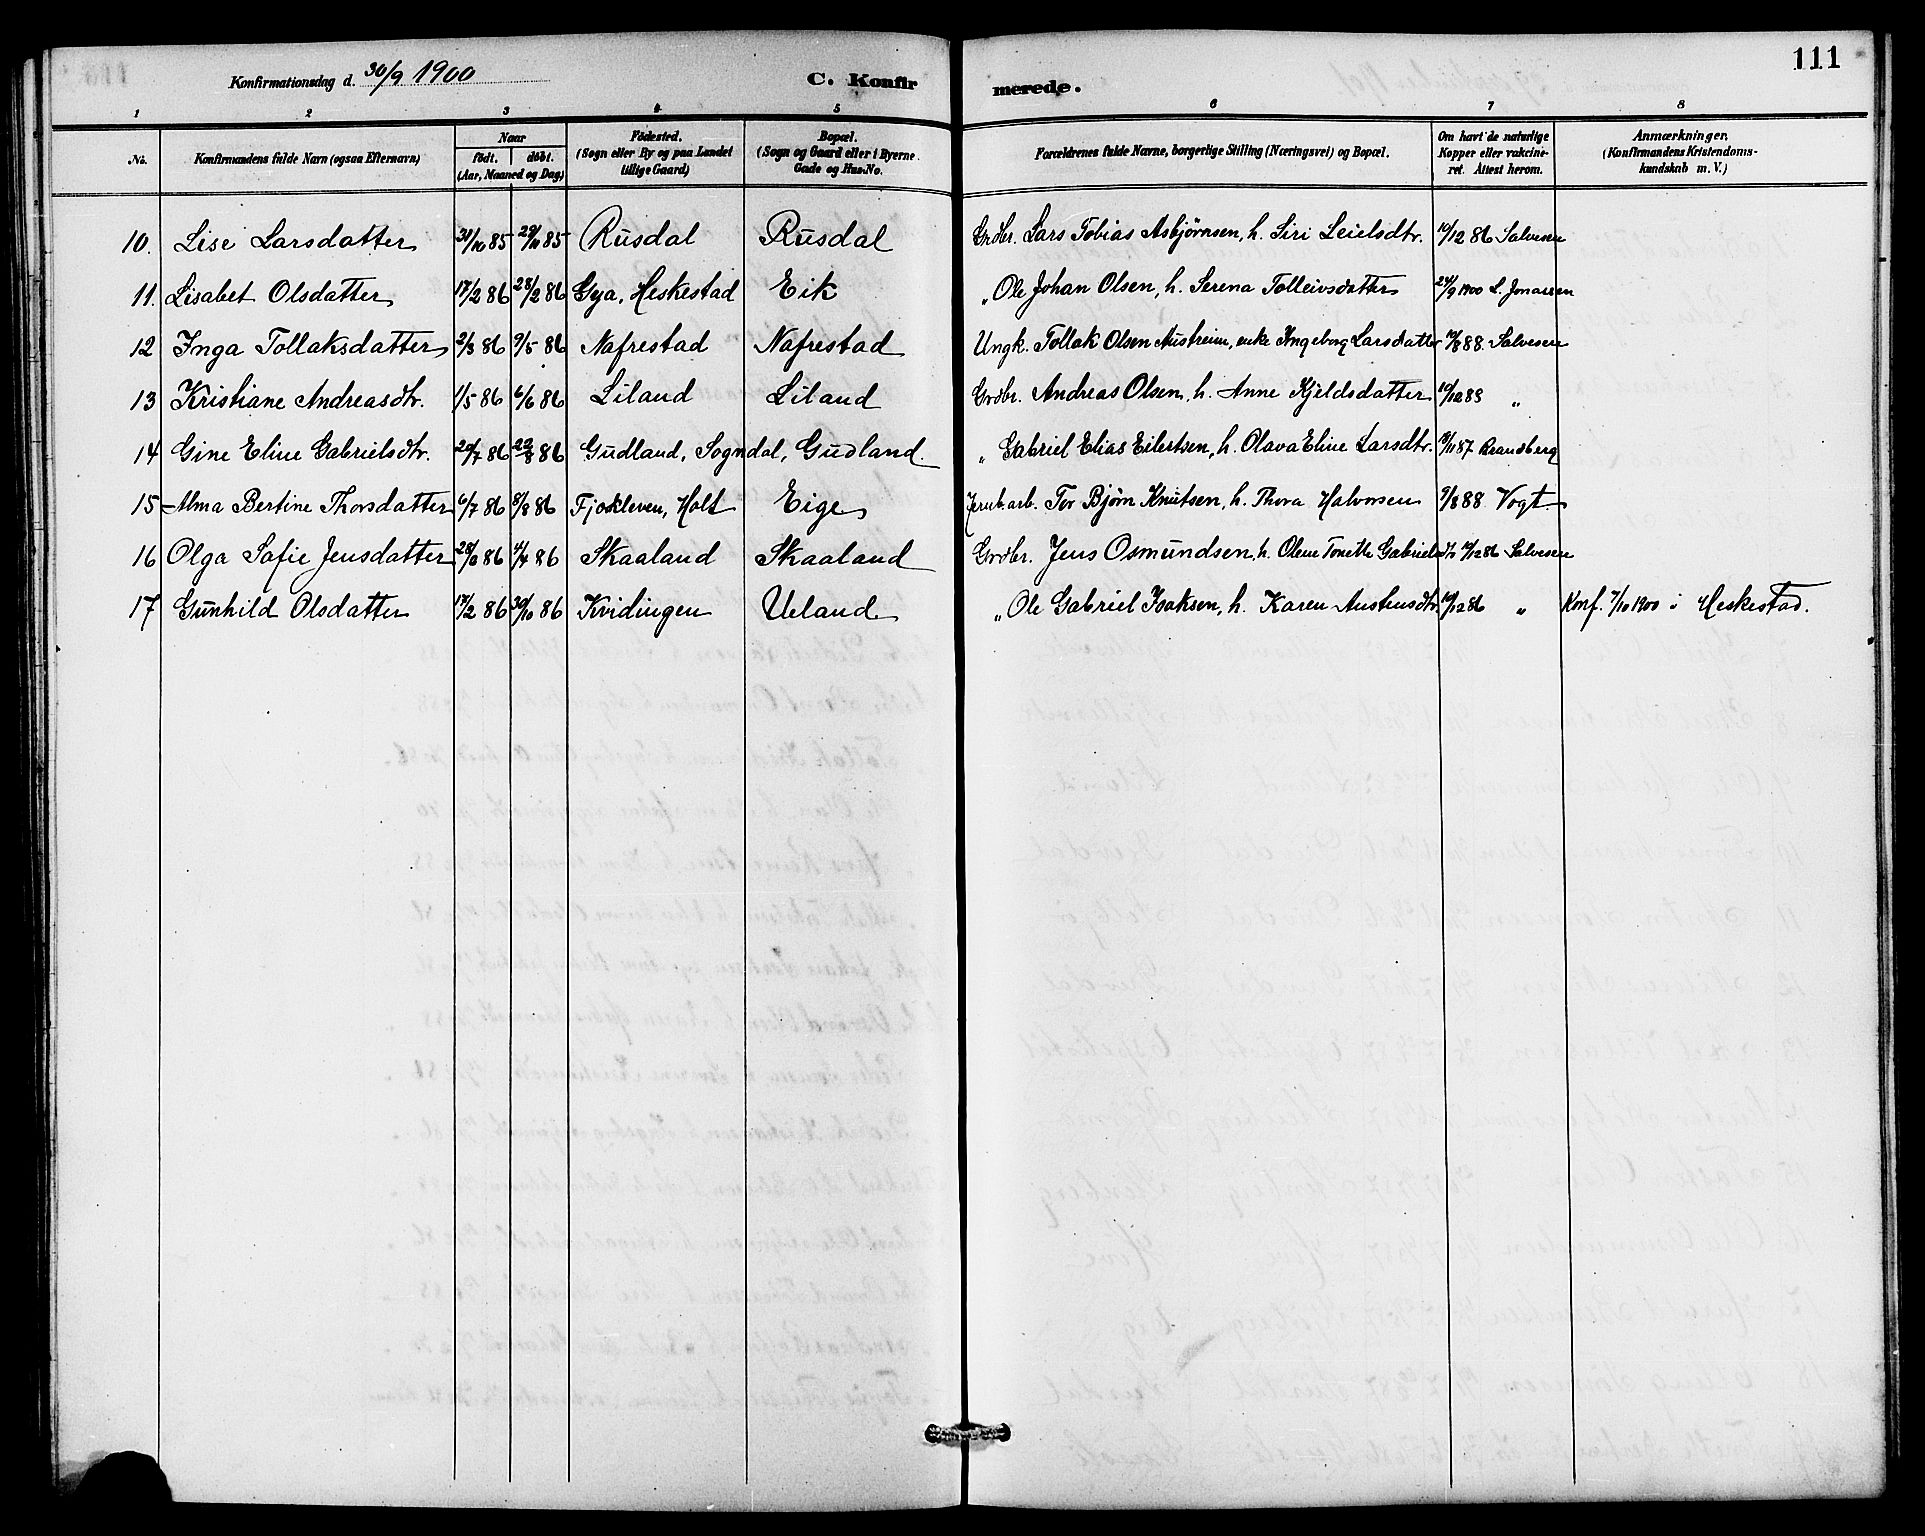 111
Konfirmationsdag d. 30/9 1900 C. Konfirmerede.
1 2 3 4 5 6 7 8
No. Konfirmandens fulde Navn (ogsaa Efternavn) Naar født. døbt. (Aar, Maaned og Dag) Fødested. (Sogn eller By og paa Landet tillige Gaard) Bopæl. (Sogn og Gaard eller i Byerne Gade og Hus-No. Forældrenes fulde Navne, borgerlige Stilling (Næringsvei) og Bopæl. Om havt de naturlige Kopper eller vakcineret. Attest herom. Anmærkninger. (Konfirmandens Kristendomskundskab m. V.)
10. Lise Larsdatter 31/10 85 29/11 85 Rusdal Rusdal Grdbr. Lars Tobias Asbjørnsen, h. Siri Leielsdtr. 10/12 86 Salvesen
11. Lisabet Olsdatter 17/2 86 28/2 86 Gya, Heskestad Eik " Ole Johan Olsen, h. Serena Tolleivsdatter 24/9 1900 L. Jonassen
12 Inga Tollaksdatter 2/3 86 9/5 86 Nafrestad Nafrestad Ungk. Tollak Olsen Austreim, enke Ingeborg Larsdatter 88. Salvesen
13 Kristiane Andreasdtr. 1/5 86 6/6 86 Liland Liland Grdbr. Andreas Olsen, h. Anne Kjeldsdatter 10/12 "
14 Gine Eline Gabrielsdtr. 20/7 86 22/8 86 Gudland, Sogndal, Gudland. " Gabriel Elias Eilertsen, h. Olava Eline Larsdtr. 87 Brandberg
15 Alma Bertine Thorsdatter 6/7 86 8/8 86 Fjokleven, Holt Eige Jernb. arb. Tor Bjørn Knutsen, h. Thora Halvorsen 9/8 88 Vogt
16 Olga Sofie Jensdatter 86 4/4 86 Skaaland Skaaland Grdbr. Jens Osmundsen, h. Olene Tonette Gabrielsdtr 10/12 86 Salvesen
17 Gunhild Olsdatter 17/2 86 30/10 86 Kvidingen Ueland " Ole Gabriel Isaksen, h. Karen 10/12 86 " Konf. 7/10 1900 i Heskestad.